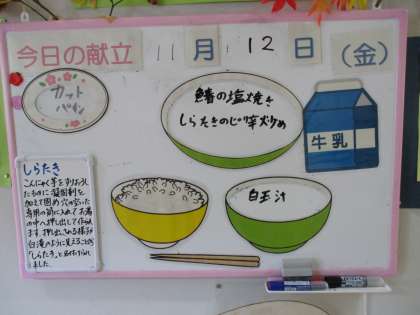 今日の献立 11月12日(金)
カット
パイン
鯖の塩焼き
しらたきのピリ辛炒め
牛乳
白玉汁
しらたき
こんにゃく芋をすりおろし
たものに凝固剤を
加えて固め穴が空いた
専用の筒に入れてお湯
の中へ押し出して作られ
ます。押し出される様子が
白滝のように見えることから
「しらたき」と名付けられ
ました。